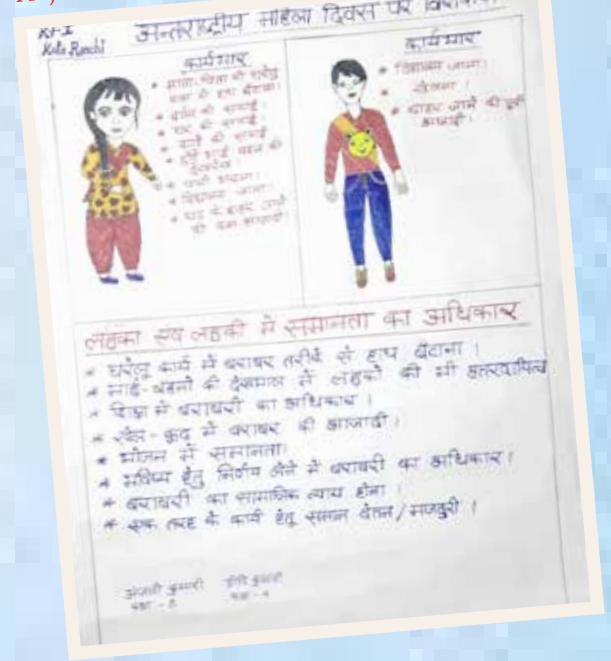 KV-I
Kolo Ranchi
अन्तर्राष्ट्रीय महिला दिवस पर
कार्यभार
* माता-पिता की घरेलू
की सफाई।
* घर की सफाई।
* विद्यालय जाना।
* घर के बाहर जाने
की कम आजादी।
कार्यभार
* विद्यालय जाना।
* खेलना।
* बाहर जाने की पूरी
आजादी।
लड़का एवं लड़की में समानता का अधिकार
* घरेलू कार्य में बराबर तरीके से हाथ बँटाना।
* भाई-बहनों की देखभाल में लड़कों की भी उत्तरदायित्व
* शिक्षा में बराबरी का अधिकार।
* खेल-कूद में बराबर की आजादी।
* भोजन में समानता।
* भविष्य हेतु निर्णय लेने में बराबरी का अधिकार।
* बराबरी का सामाजिक न्याय होना।
* एक तरह के कार्य हेतु समान वेतन/मजदुरी।
अंजली कुमारी
कक्षा - 8
कुमारी
कक्षा - 9